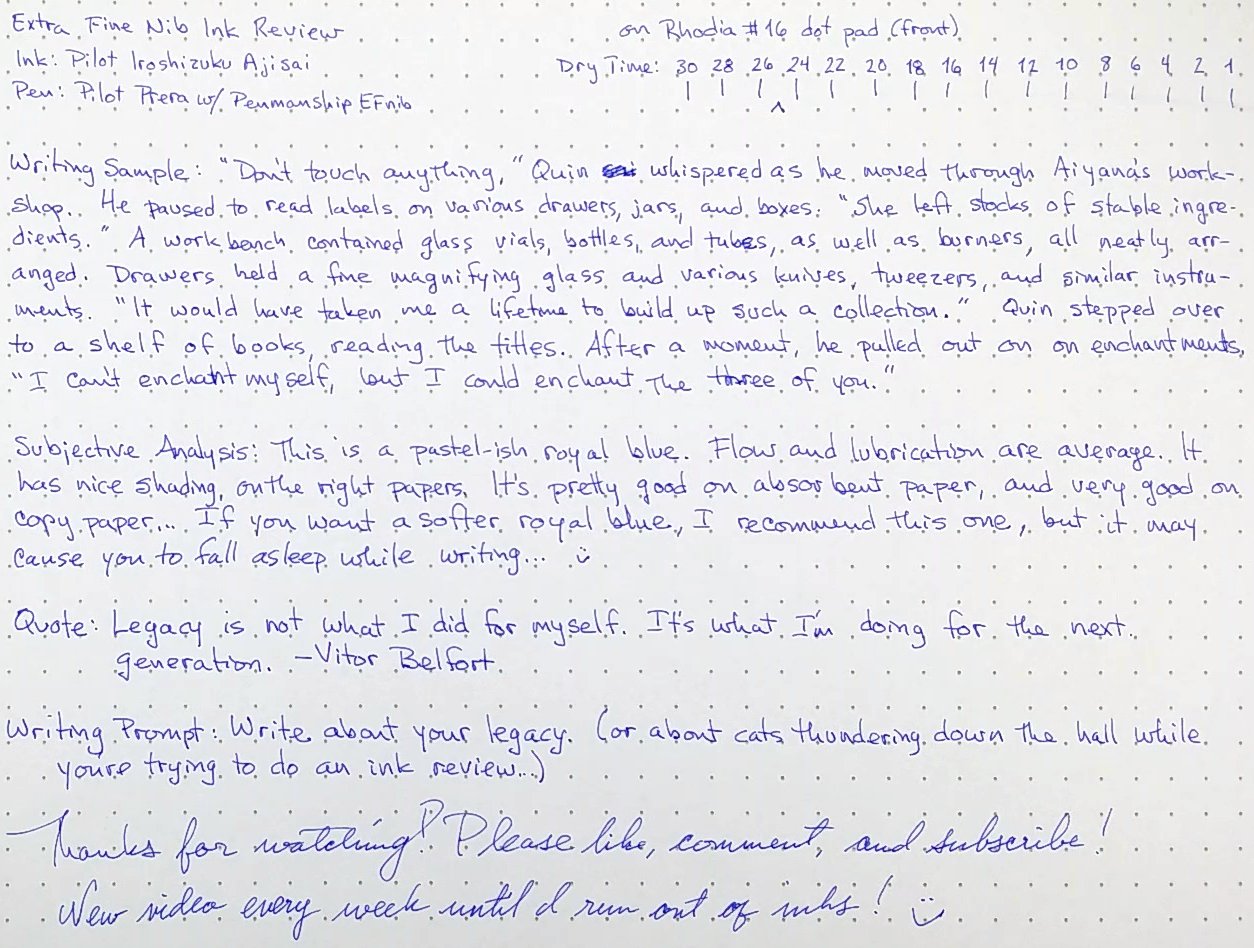 Extra Fine Nib Ink Review
on Rhodia #16 dot pad (front)
Ink: Pilot Iroshizuku Ajisai
Dry Time: 30 28 26 24 22 20 18 16 14 12 10 8 6 4 2 1
Pen: Pilot Prera w/ Penmanship EF nib
Writing Sample: "Don't touch anything," Quin whispered as he moved through Aiyana's work-
shop. He paused to read labels on various drawers, jars, and boxes. "She left stocks of stable ingre-
dients." A workbench contained glass vials, bottles, and tubes, as well as burners, all neatly arr-
anged. Drawers held a fine magnifying glass and various knives, tweezers, and similar instru-
ments. "It would have taken me a lifetime to build up such a collection." Quin stepped over
to a shelf of books, reading the titles. After a moment, he pulled out on on enchantments,
"I can't enchant myself, but I could enchant the three of you."
Subjective Analysis: This is a pastel-ish royal blue. Flow and lubrication are average. It
has nice shading, on the right papers. It's pretty good on absorbent paper, and very good on
copy paper... If you want a softer royal blue, I recommend this one, but it may
cause you to fall asleep while writing... :)
Quote: Legacy is not what I did for myself. It's what I'm doing for the next
generation. -Vitor Belfort
Writing Prompt: Write about your legacy. (or about cats thundering down the hall while
you're trying to do an ink review...)
Thanks for watching! Please like, comment, and subscribe!
New video every week until I run out of inks! :)